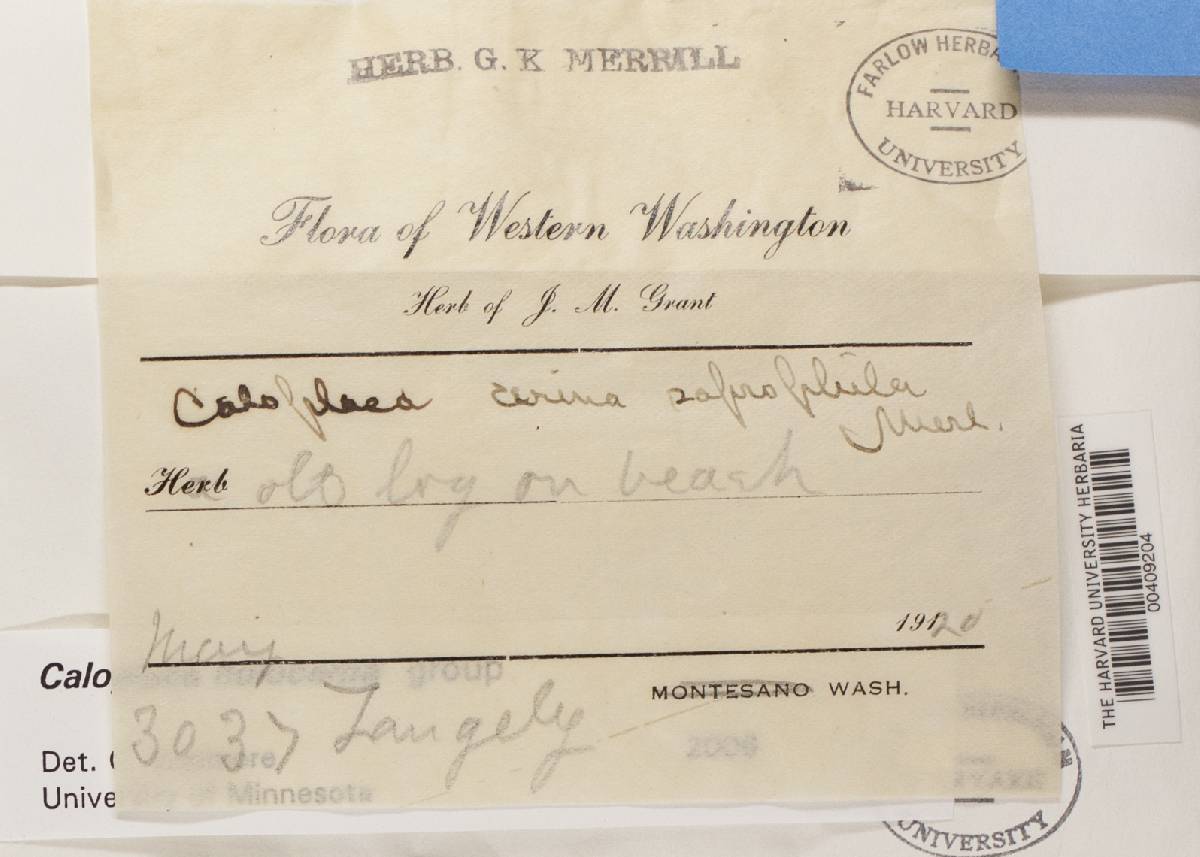 HERB. G. K MERRILL
FARLOW HERBA
HARVARD
UNIVERSITY
Flora of Western Washington
Herb of J. M. Grant
Caloplaca cerina saprophila
Merl.
Herb old log on beach
1920
May
MONTESANO WASH.
3037 Langely
Calo group
2006
Det.
University of Minnesota
UNIVERSITY
THE HARVARD UNIVERSITY HERBARIA
00409204